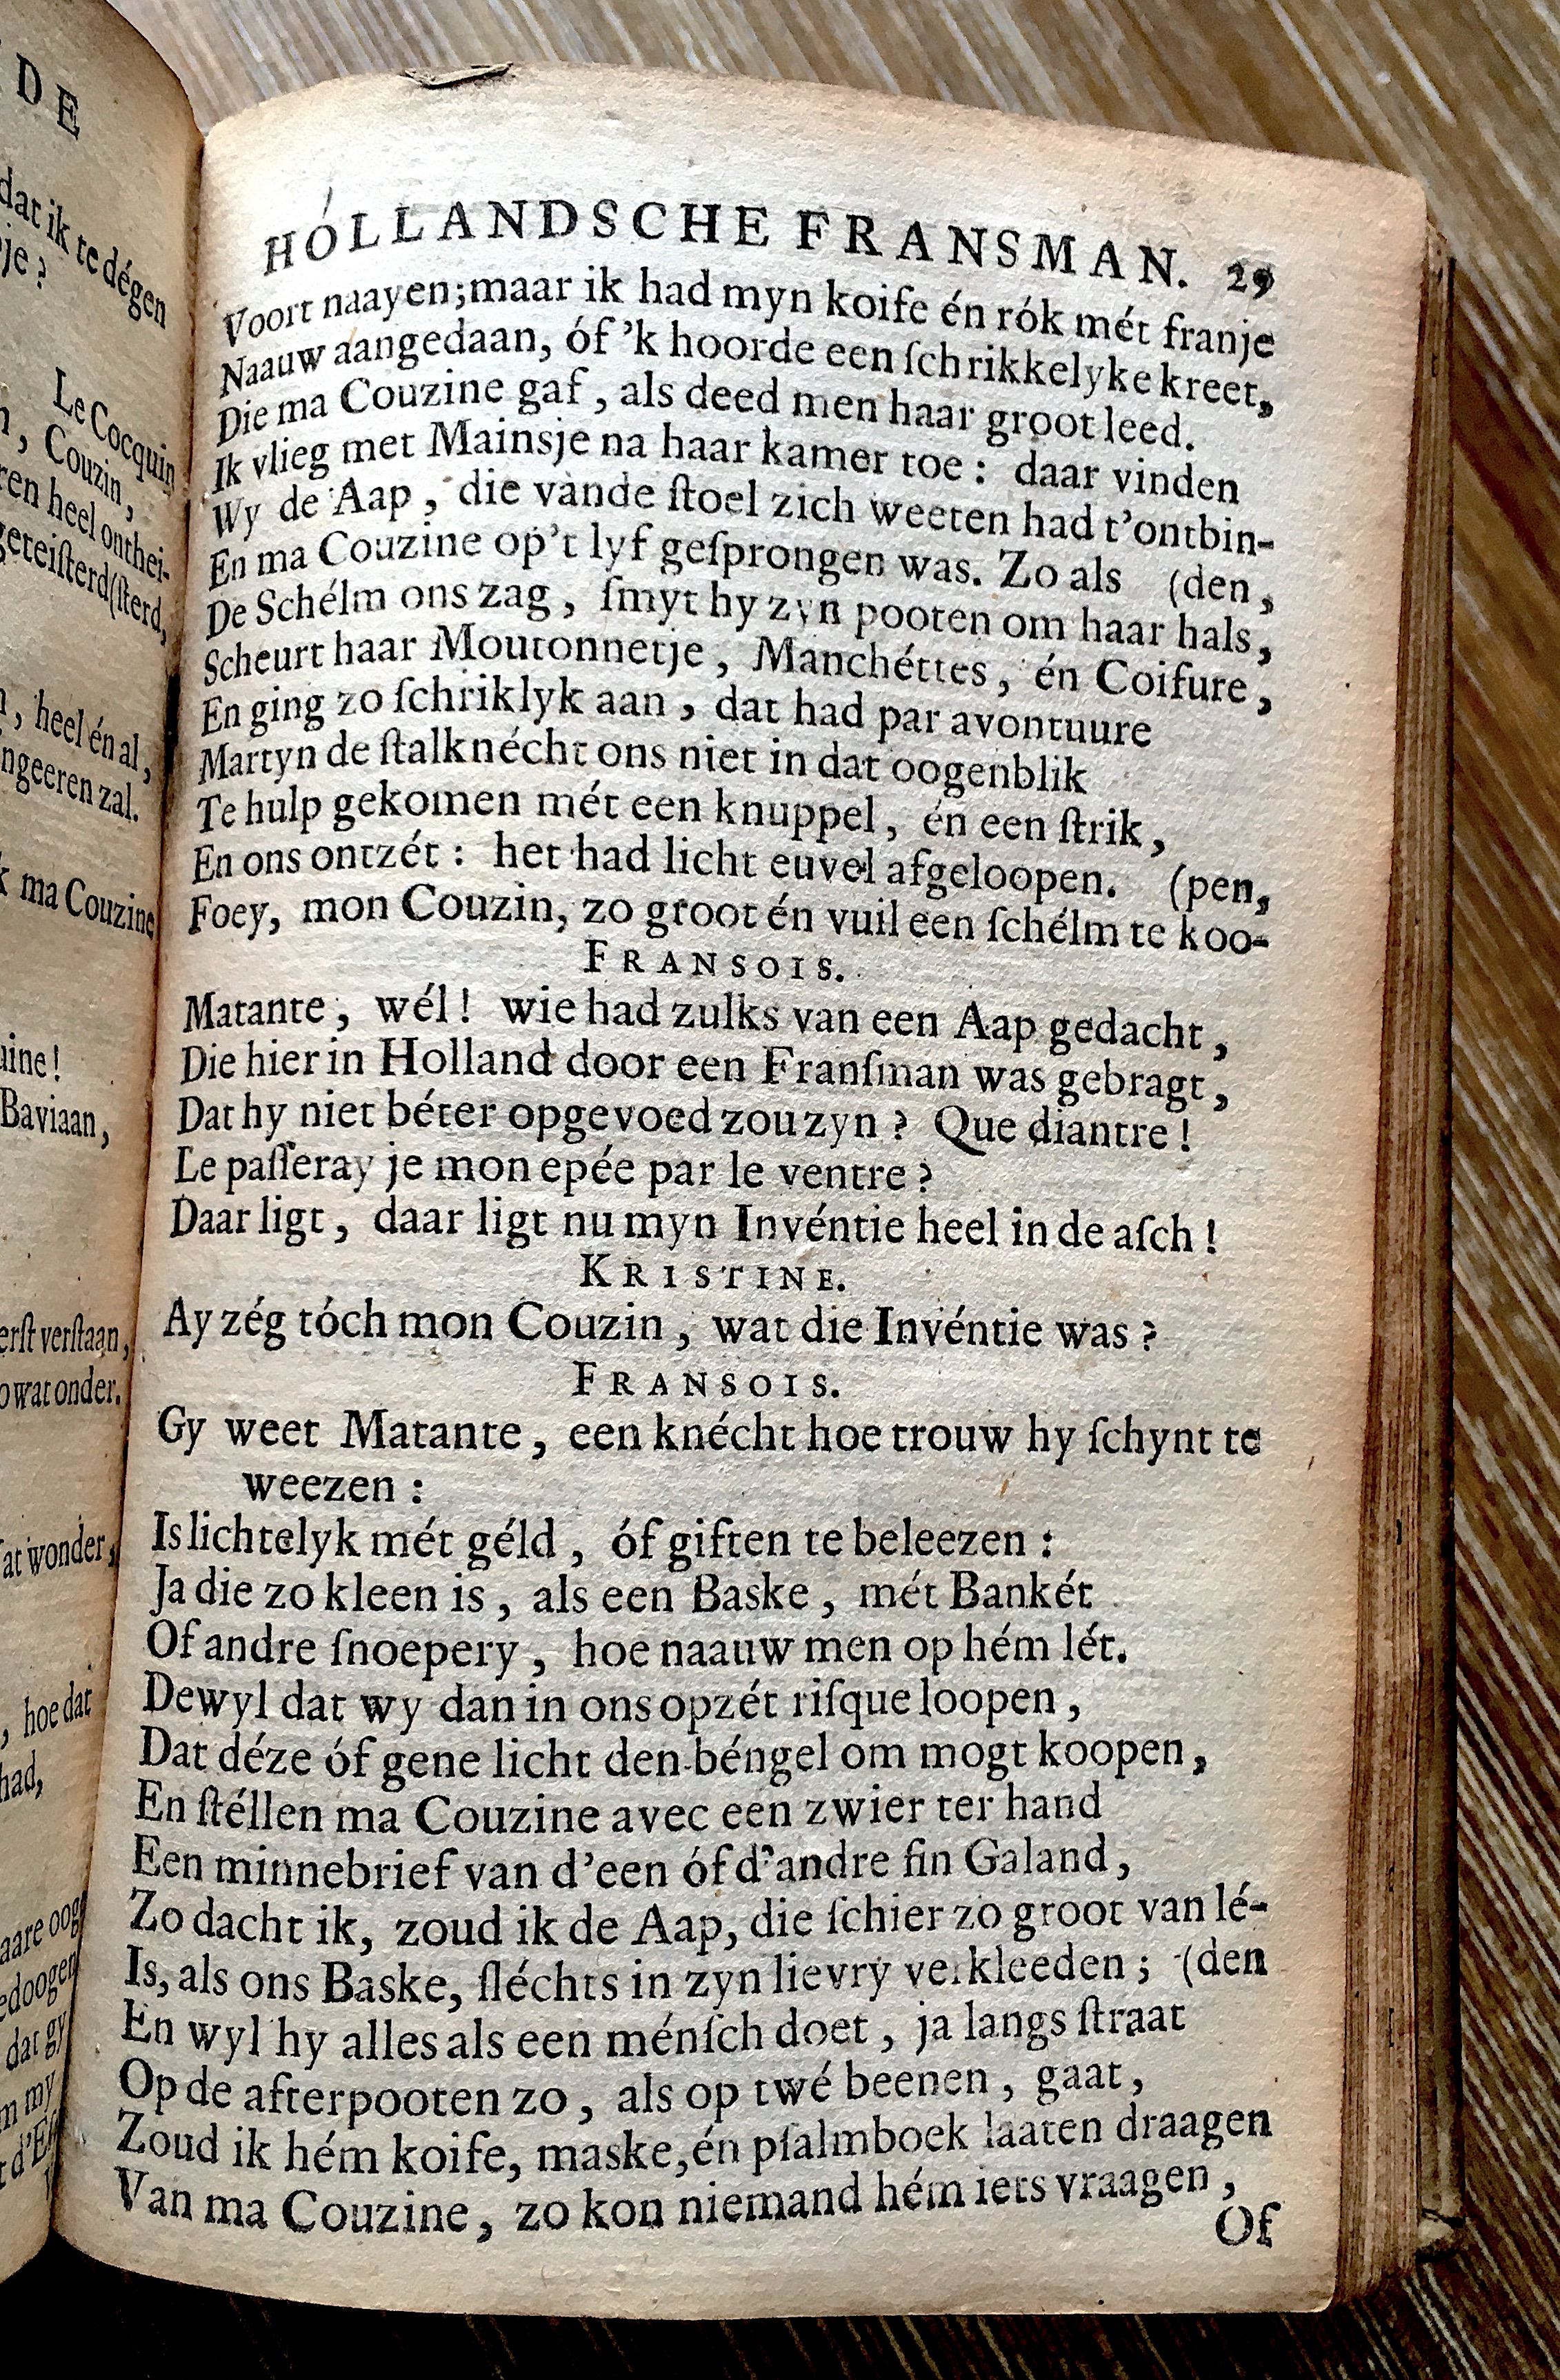 DE
dat ik te dégen
je?
Le Cocquin
, Couzin,
ren heel onthei-
geteiſterd (ſterd,
, heel én al,
ngeeren zal.
ma Couzine
uine!
Baviaan,
erſt verſtaan,
o wat onder.
at wonder,
, hoe dat
had,
aare oog
edoogen
dat gy
m my
HÓLLANDSCHE FRANSMAN. 29
Voort naayen; maar ik had myn koife én rók mét franje
Naauw aangedaan, óf 'k hoorde een ſchrikkelyke kreet,
Die ma Couzine gaf, als deed men haar groot leed.
Ik vlieg met Mainsje na haar kamer toe: daar vinden
Wy de Aap, die vande ſtoel zich weeten had t'ontbin-
En ma Couzine op't lyf geſprongen was. Zo als (den,
De Schélm ons zag, ſmyt hy zyn pooten om haar hals,
Scheurt haar Moutonnetje, Manchéttes, én Coifure,
En ging zo ſchriklyk aan, dat had par avontuure
Martyn de ſtalknécht ons niet in dat oogenblik
Te hulp gekomen mét een knuppel, én een ſtrik,
En ons ontzét: het had licht euvel afgeloopen. (pen,
Foey, mon Couzin, zo groot én vuil een ſchélm te koo-
FRANSOIS.
Matante, wél! wie had zulks van een Aap gedacht,
Die hier in Holland door een Franſman was gebragt,
Dat hy niet béter opgevoed zou zyn? Que diantre!
Le paſſeray je mon epée par le ventre?
Daar ligt, daar ligt nu myn Invéntie heel in de aſch!
KRISTINE.
Ay zég tóch mon Couzin, wat die Invéntie was?
FRANSOIS.
Gy weet Matante, een knécht hoe trouw hy ſchynt te
weezen:
Is lichtelyk mét géld, óf giften te beleezen:
Ja die zo kleen is, als een Baske, mét Bankét
Of andre ſnoepery, hoe naauw men op hém lét.
Dewyl dat wy dan in ons opzét riſque loopen,
Dat déze óf gene licht den béngel om mogt koopen,
En ſtéllen ma Couzine avec een zwier ter hand
Een minnebrief van d'een óf d'andre fin Galand,
Zo dacht ik, zoud ik de Aap, die ſchier zo groot van lé-
Is, als ons Baske, ſléchts in zyn lievry verkleeden; (den
En wyl hy alles als een ménſch doet, ja langs ſtraat
Op de afterpooten zo, als op twé beenen, gaat,
Zoud ik hém koife, maske, én pſalmboek laaten draagen
Van ma Couzine, zo kon niemand hém iets vraagen,
Of